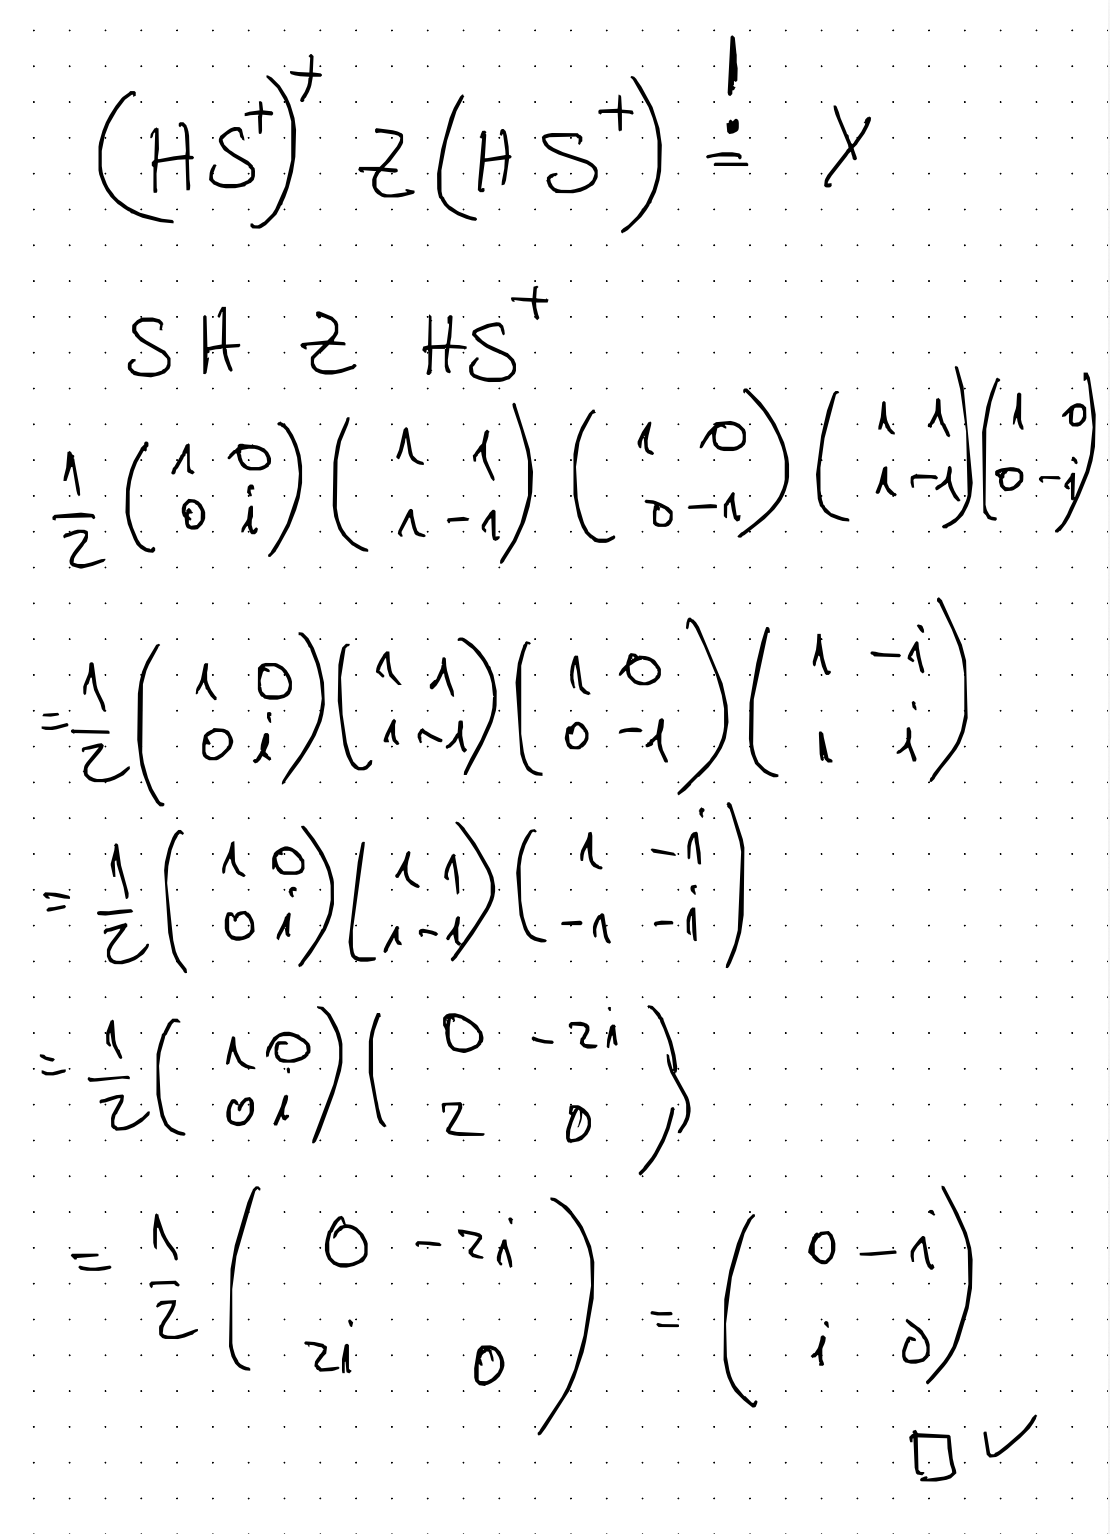 (HS⁺)⁺ Z (HS⁺) =! Y
SH Z HS⁺
1/2 (1 0; 0 i) (1 1; 1 -1) (1 0; 0 -1) (1 1; 1 -1) (1 0; 0 -i)
= 1/2 (1 0; 0 i) (1 1; 1 -1) (1 0; 0 -1) (1 -i; 1 i)
= 1/2 (1 0; 0 i) (1 1; 1 -1) (1 -i; -1 -i)
= 1/2 (1 0; 0 i) (0 -2i; 2 0)
= 1/2 (0 -2i; 2i 0) = (0 -i; i 0)
□ ✓